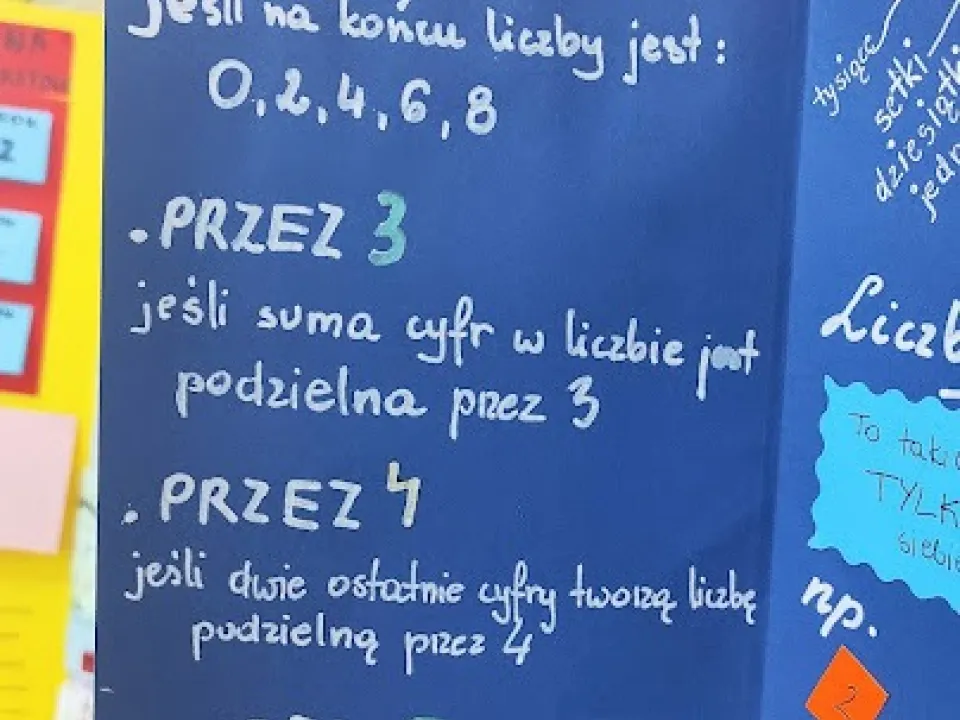 jeśli na końcu liczby jest :
0, 2, 4, 6, 8
. PRZEZ 3
jeśli suma cyfr w liczbie jest
podzielna przez 3
. PRZEZ 4
jeśli dwie ostatnie cyfry tworzą liczbę
podzielną przez 4
tysiące
setki
dziesiątki
jedn
Liczb
To taki
TYLK
siebie
np.
2
2